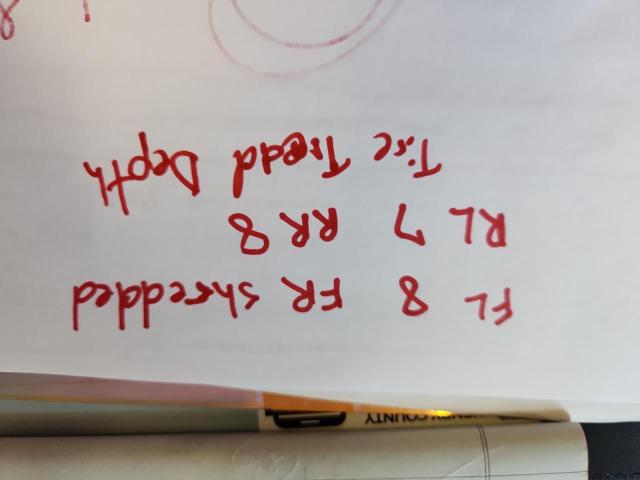 HENRY COUNTY
FL 8 FR shredded
RL 7 RR 8
Tire Tread Depth